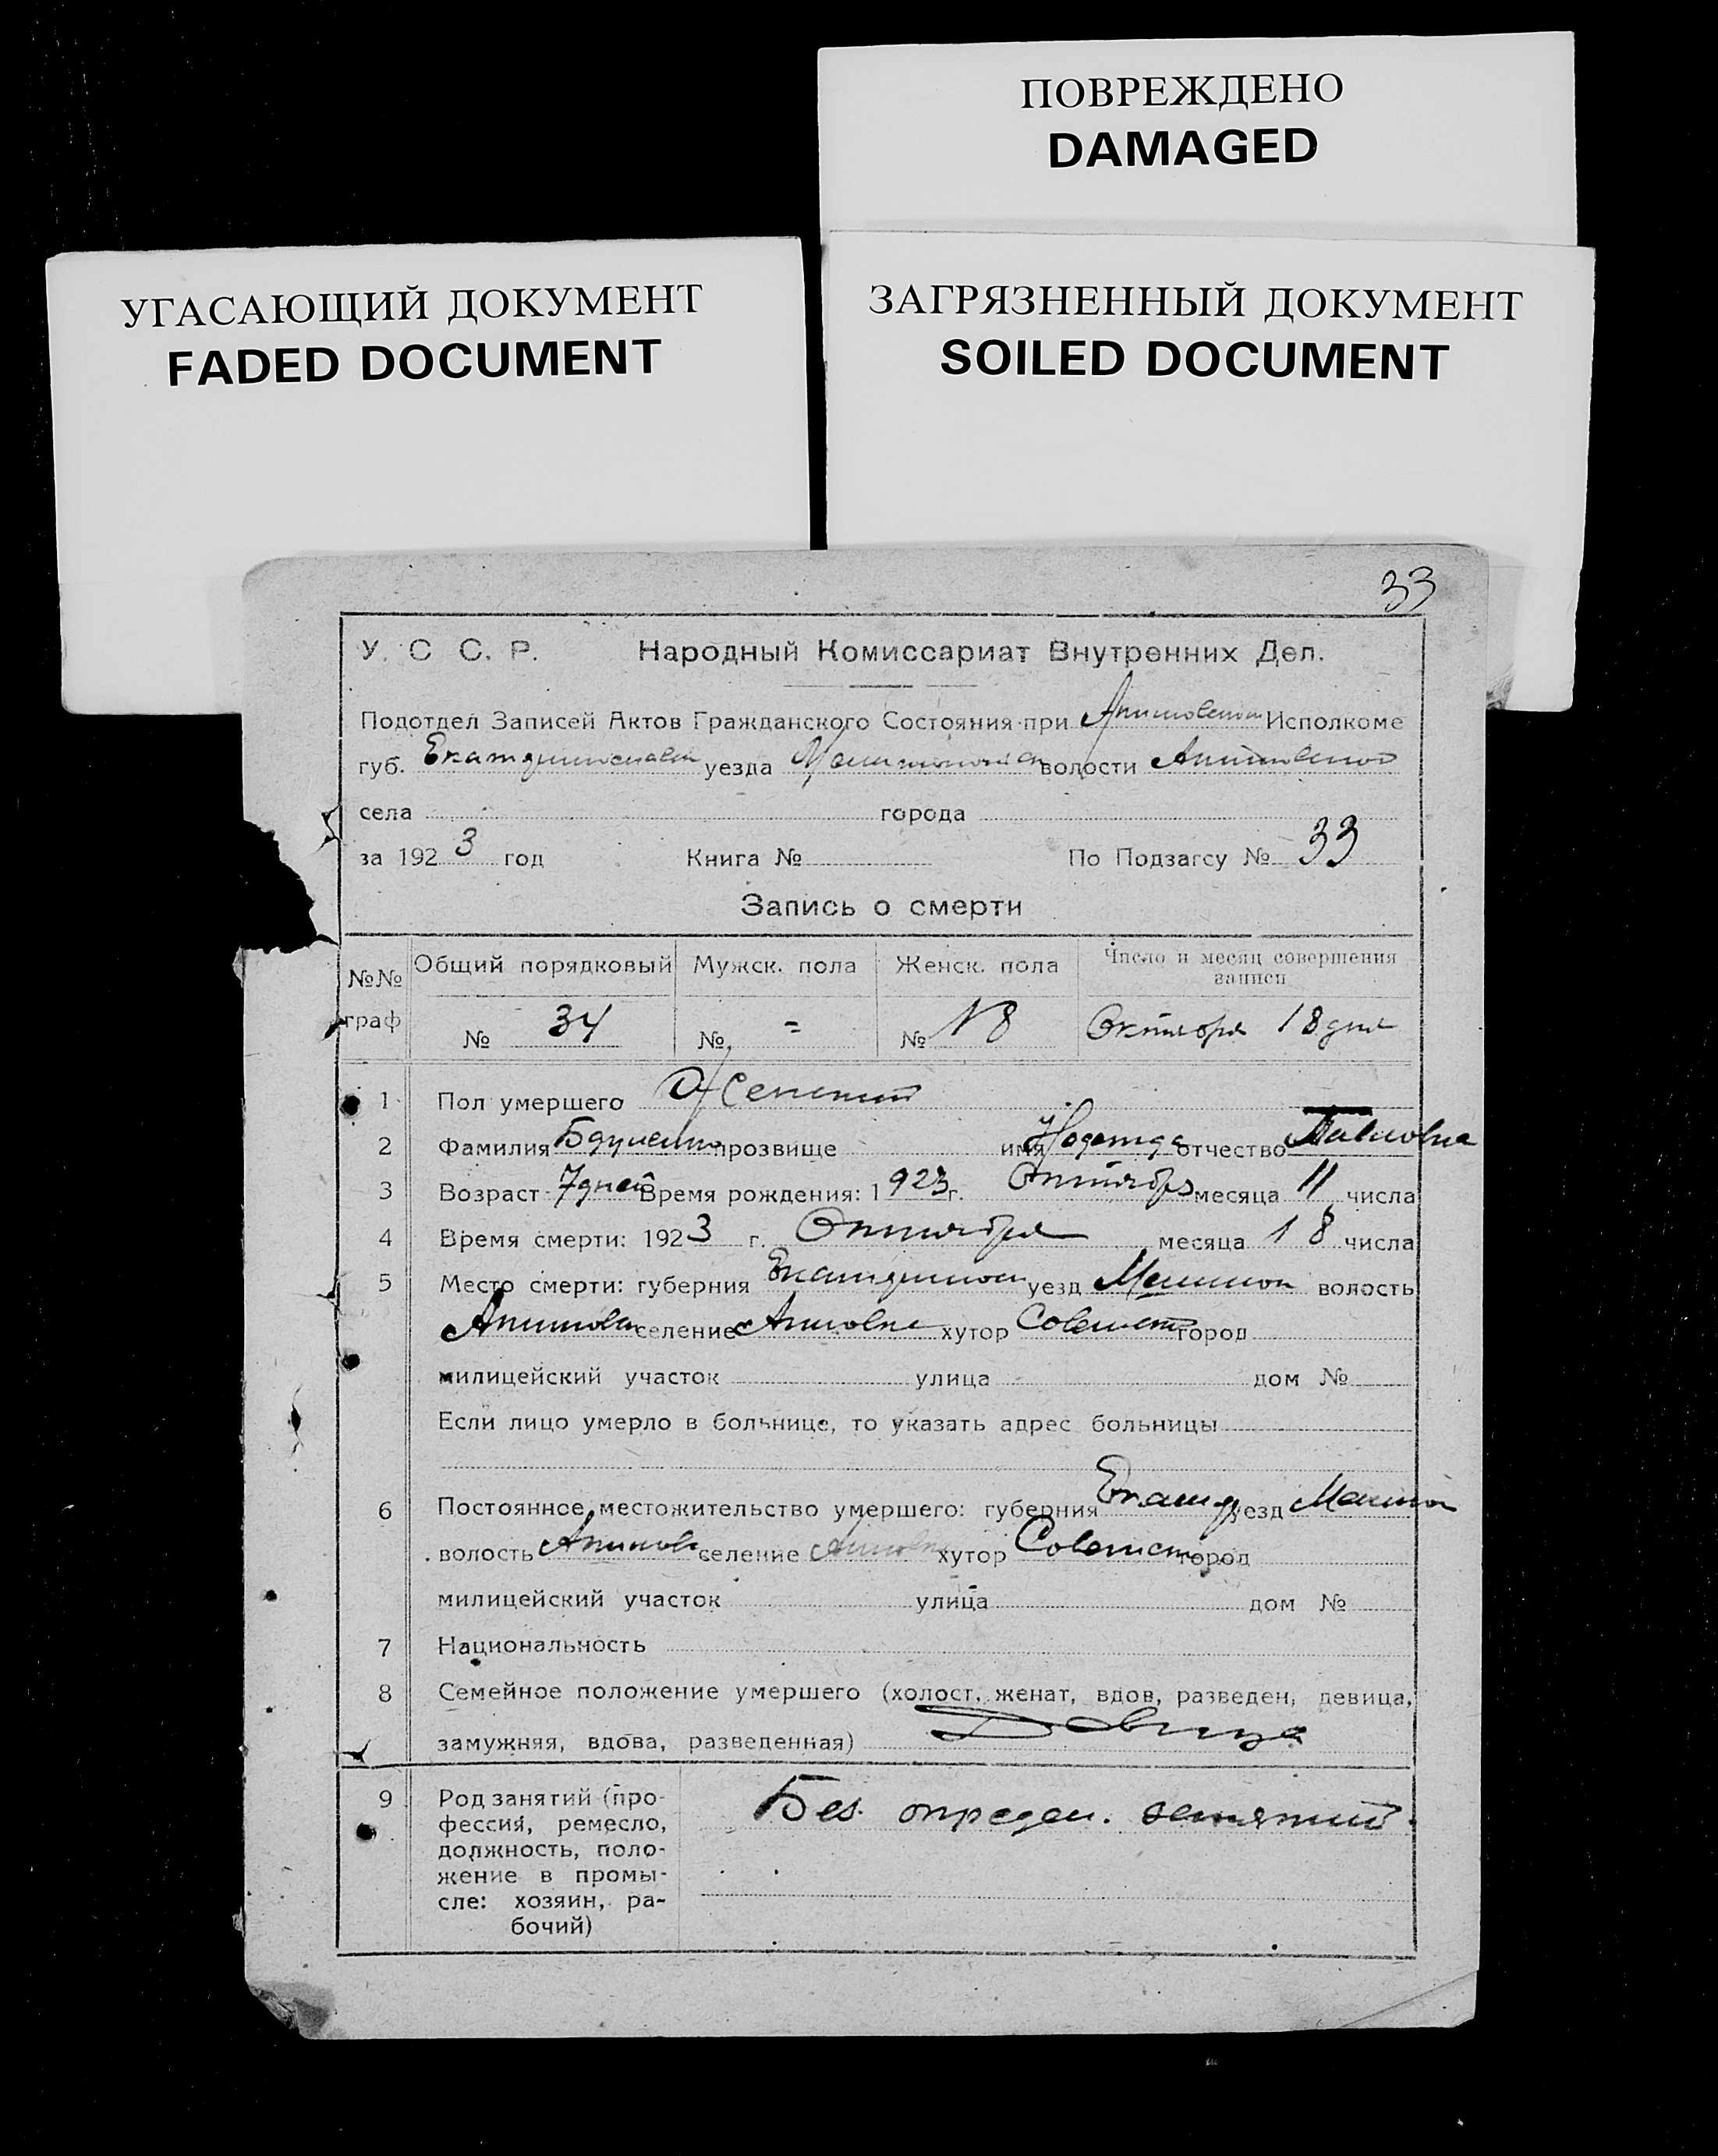 ПОВРЕЖДЕНО
DAMAGED
УГАСАЮЩИЙ ДОКУМЕНТ
FADED DOCUMENT
ЗАГРЯЗНЕННЫЙ ДОКУМЕНТ
SOILED DOCUMENT
33
У. С. С. Р. Народный Комиссариат Внутренних Дел.
Подотдел Записей Актов Гражданского Состояния при Исполкоме
губ. уезда волости
села города
за 1923 год Книга № По Подзагсу № 33
Запись о смерти
№№ граф Общий порядковый Мужск. пола Женск. пола Число и месяц совершения записи
№ 34 № = № 18 Октября 18 дня
1 Пол умершего Женский
2 Фамилия прозвище имя Надежда отчество Павловна
3 Возраст 7 дней Время рождения: 1923 г. Октября месяца 11 числа
4 Время смерти: 1923 г. Октября месяца 18 числа
5 Место смерти: губерния уезд волость
селение хутор город
милицейский участок улица дом №
Если лицо умерло в больнице, то указать адрес больницы
6 Постоянное местожительство умершего: губерния уезд
волость селение хутор город
милицейский участок улица дом №
7 Национальность
8 Семейное положение умершего (холост, женат, вдов, разведен, девица,
замужняя, вдова, разведенная) Девица
9 Род занятий (про- Без определ. занятий
фессия, ремесло,
должность, поло-
жение в промы-
сле: хозяин, ра-
бочий)